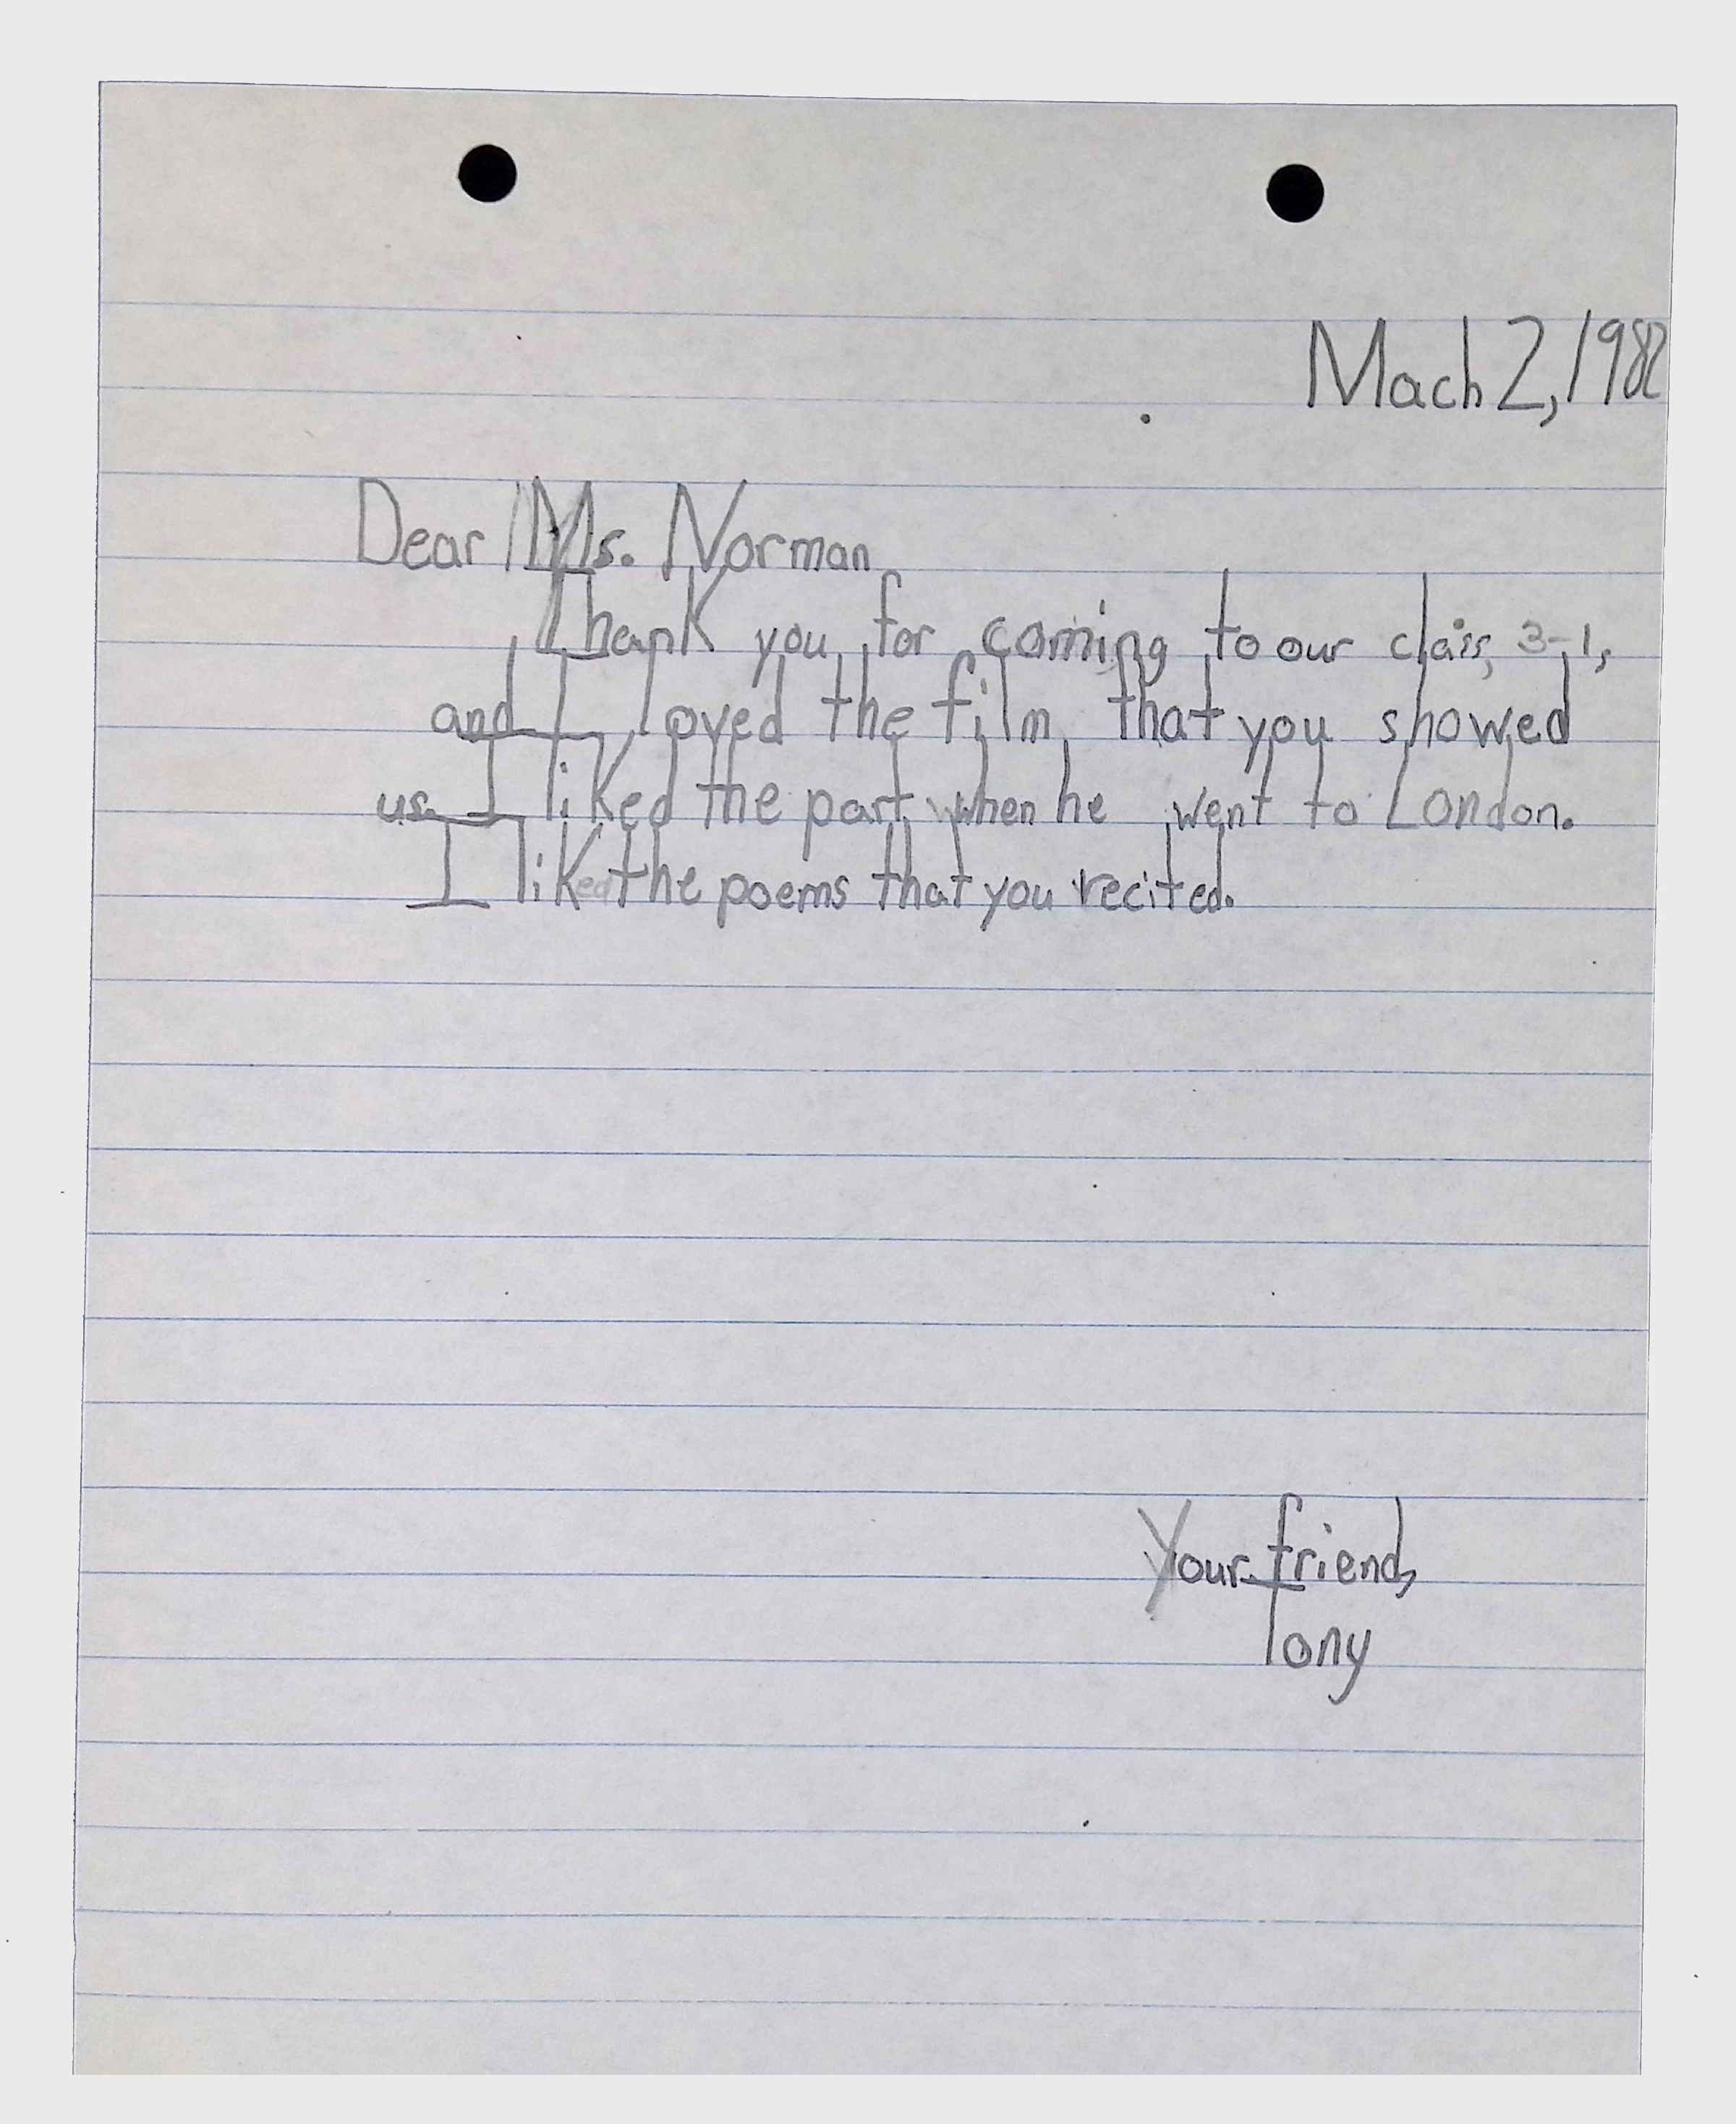 Mach 2, 1982
Dear Ms. Norman
Thank you for coming to our class, 3-1,
and I loved the film that you showed
us. I liked the part when he went to London.
I liked the poems that you recited.
Your friend,
Tony